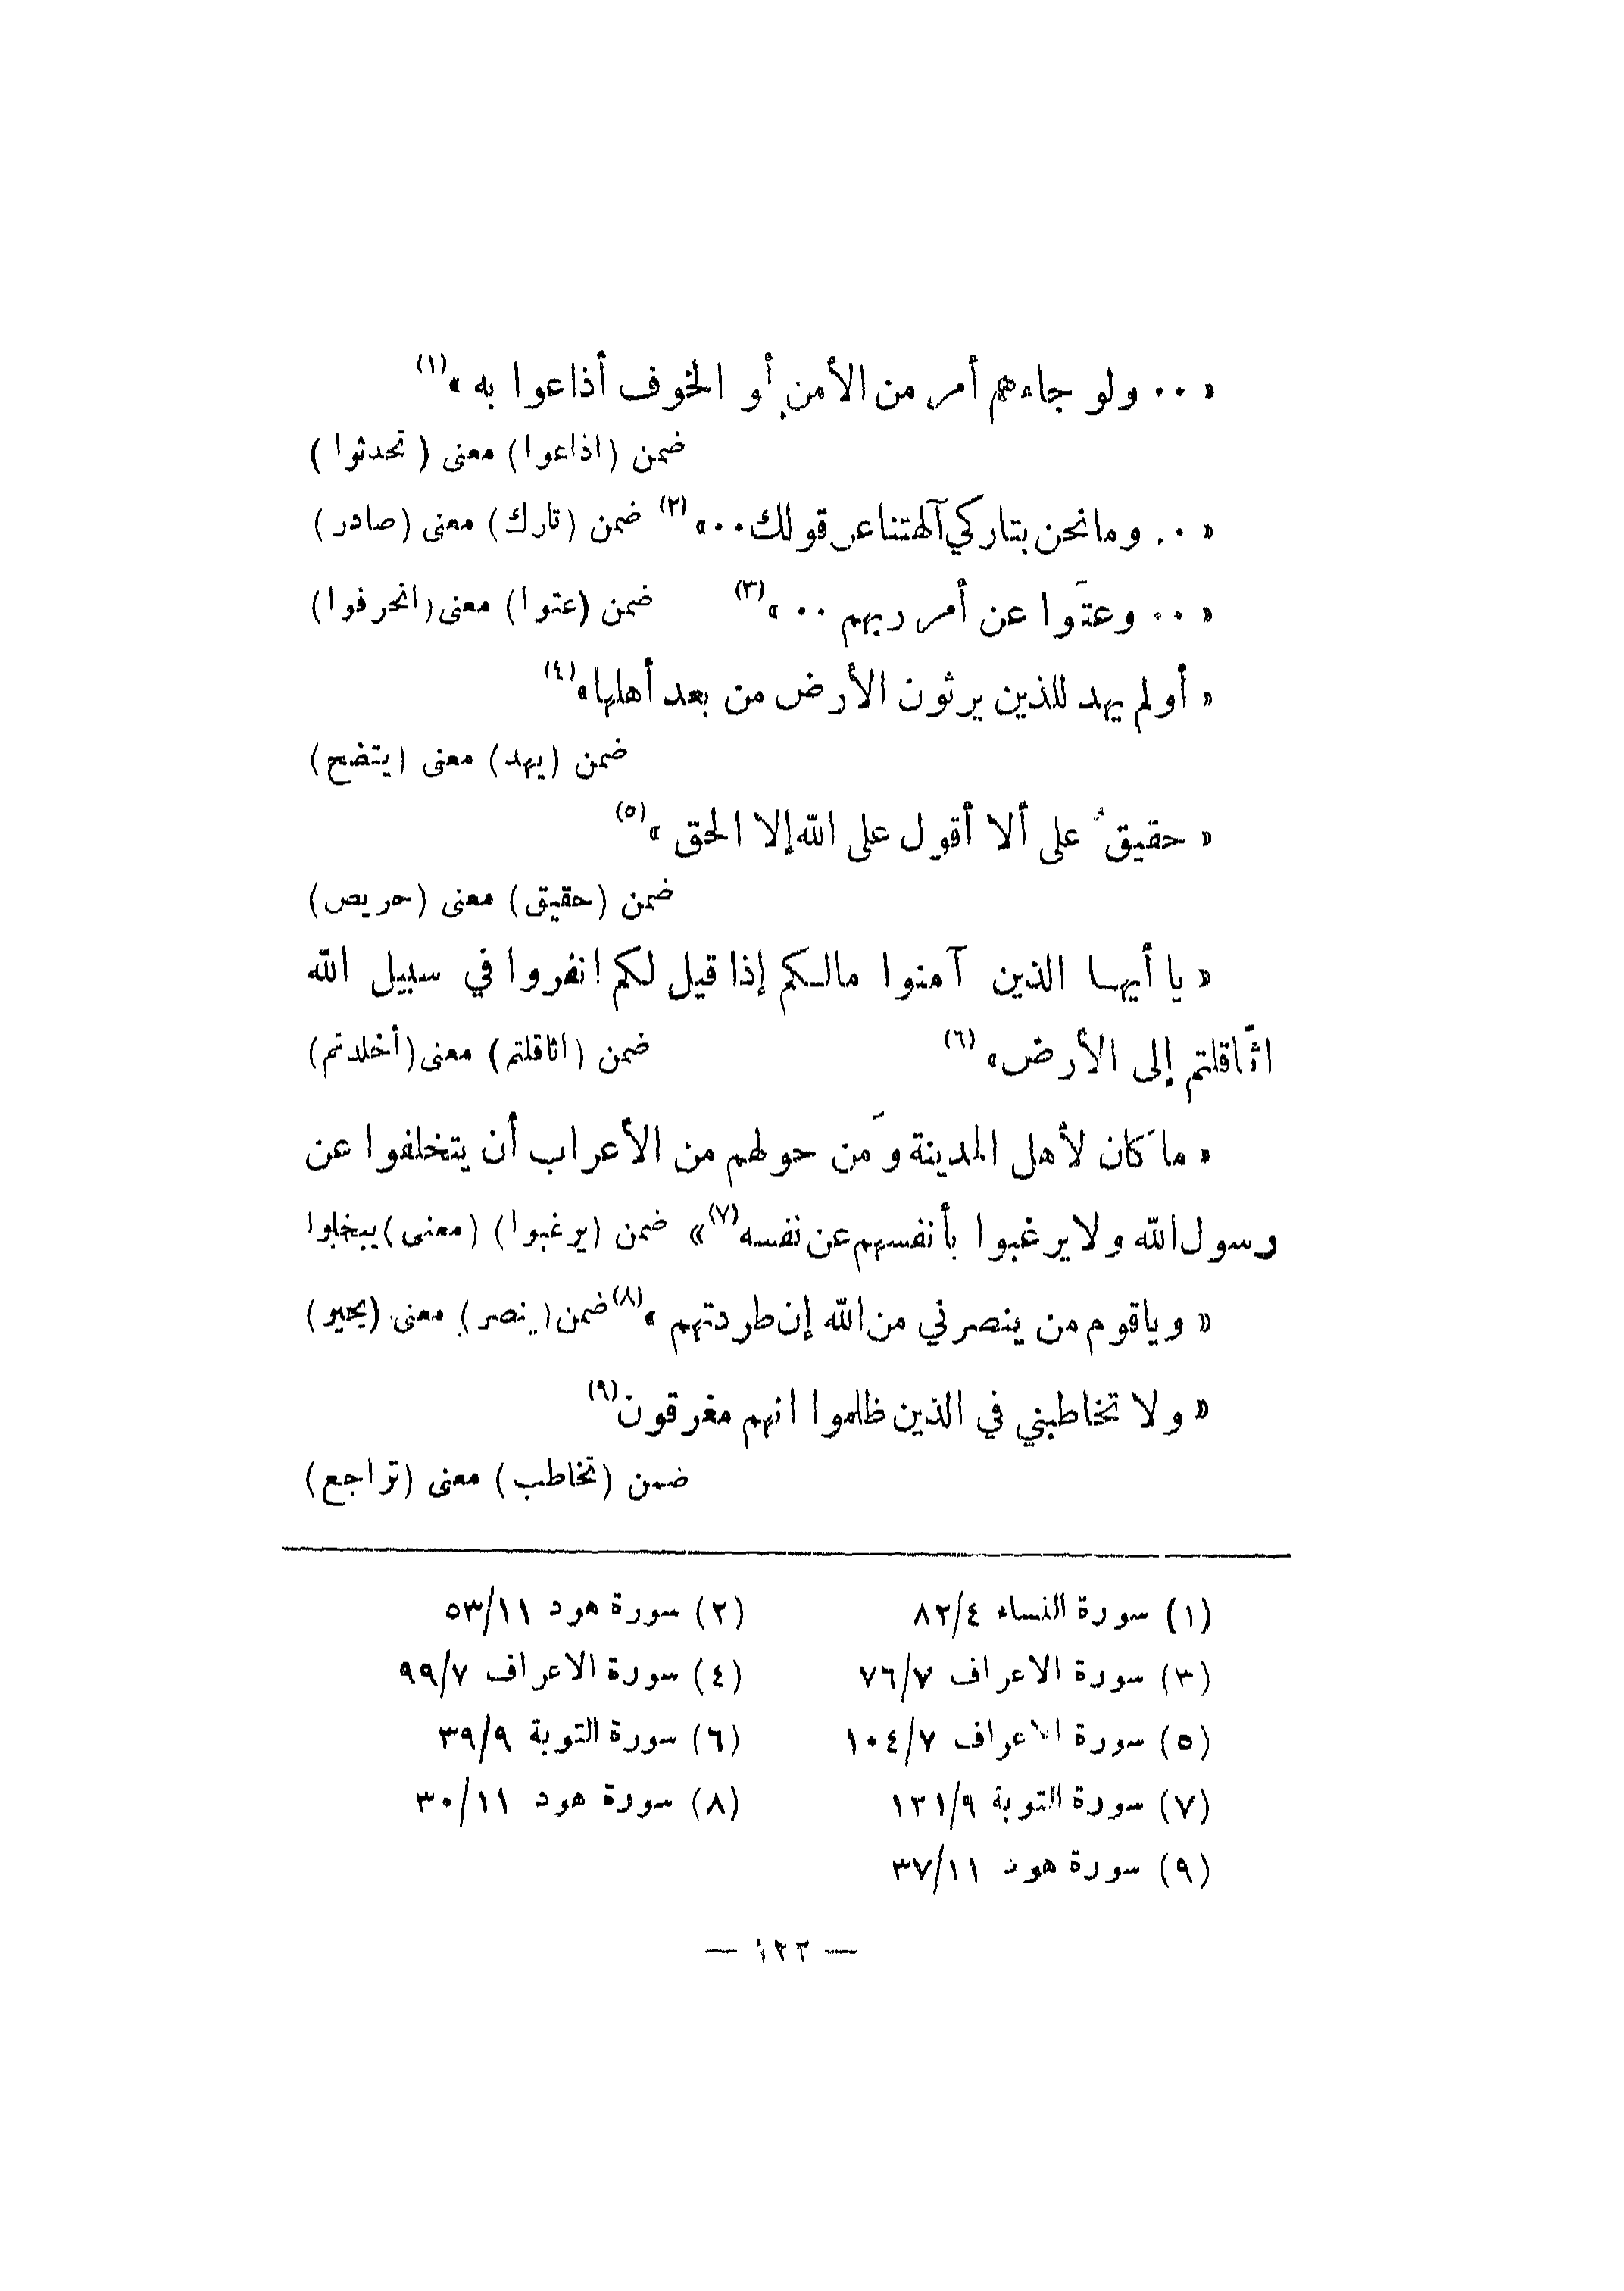 « ٠٠ ولو جاءهم أمر من الأمن أو الخوف أذاعوا به » (١)
ضمن (اذاعوا) معنى ( تحدثوا )
« ٠٠ وما نحن بتاركي آلهتنا عن قولك ٠٠» (٢) ضمن (تارك) معنى (صادر )
« ٠٠ وعتَوا عن أمر ربهم ٠٠ » (٣) ضمن (عتوا) معنى (انحرفوا)
« أولم يهد للذين يرثون الأرض من بعد أهلها» (٤)
ضمن (يهد) معنى (يتضح)
« حقيقٌ على ألا أقول على الله إلا الحق » (٥)
ضمن (حقيق) معنى (حريص)
« يا أيها الذين آمنوا مالكم إذا قيل لكم انفروا في سبيل الله
اثّاقلتم إلى الأرض» (٦) ضمن (اثاقلتم) معنى (أخلدتم)
« ما كَان لأهل المدينة ومَن حولهم من الأعراب أن يتخلفوا عن
رسول الله ولا يرغبوا بأنفسهم عن نفسه (٧)» ضمن (يرغبوا) (معنى) يبخلوا
« وياقوم من ينصرني من الله إن طردتهم » (٨) ضمن (ينصر) معنى (يجير)
« ولا تخاطبني في الذين ظلموا انهم مغرقون (٩)
ضمن (تخاطب) معنى (تراجع)
(١) سورة النساء ٨٢/٤ (٢) سورة هود ٥٣/١١
(٣) سورة الاعراف ٧٦/٧ (٤) سورة الاعراف ٩٩/٧
(٥) سورة الاعراف ١٠٤/٧ (٦) سورة التوبة ٣٩/٩
(٧) سورة التوبة ١٢١/٩ (٨) سورة هود ٣٠/١١
(٩) سورة هود ٣٧/١١